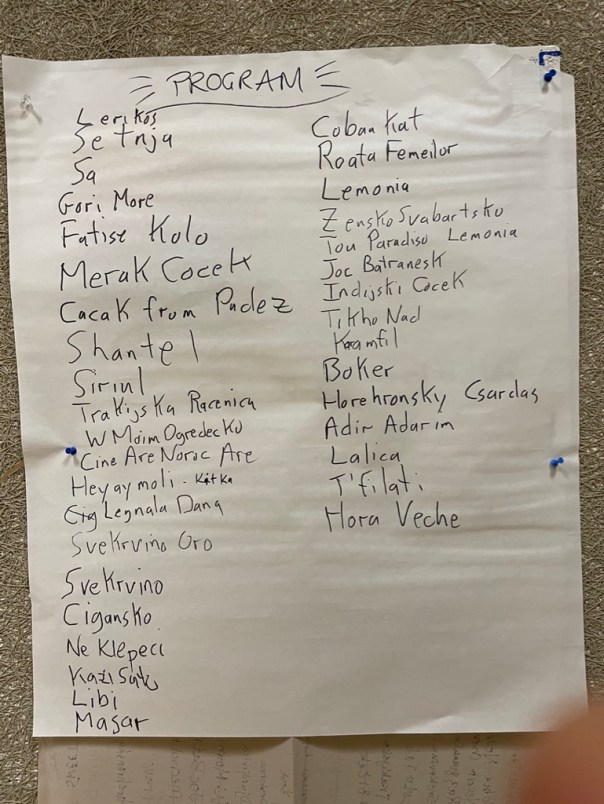 PROGRAM
Lerikos
Setnja
Sa
Gori More
Fatise Kolo
Merak Cocek
Cacak from Padez
Shantel
Sirinl
Trakijska Racenica
W Moim Ogrodecku
Cine Are Noroc Are
Hey ay moli - Kitka
Legnala Dana
Svekrvino Oro
Svekrvino
Cigansko
Ne Klepeci
Libi
Masar
Coban Kat
Roata Femeilor
Lemonia
Zensko Svabartsko
Tou Paradiso Lemonia
Joc Batranesk
Indijski Cocek
Tikho Nad
Kramfil
Boker
Horehronsky Csardas
Adir Adirim
Lalica
T'filati
Hora Veche